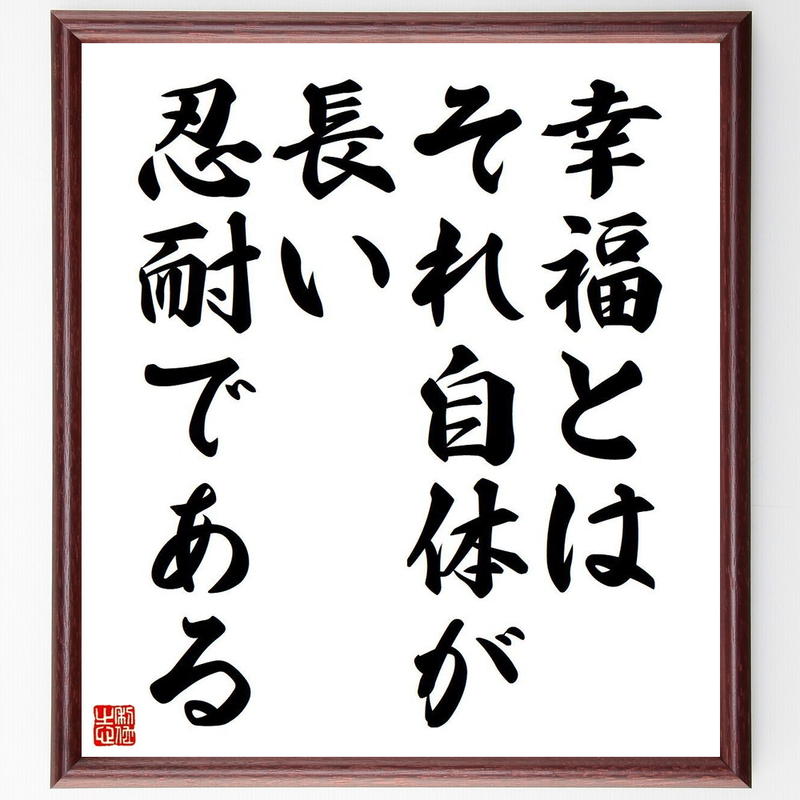 幸福とは
それ自体が
長い
忍耐である